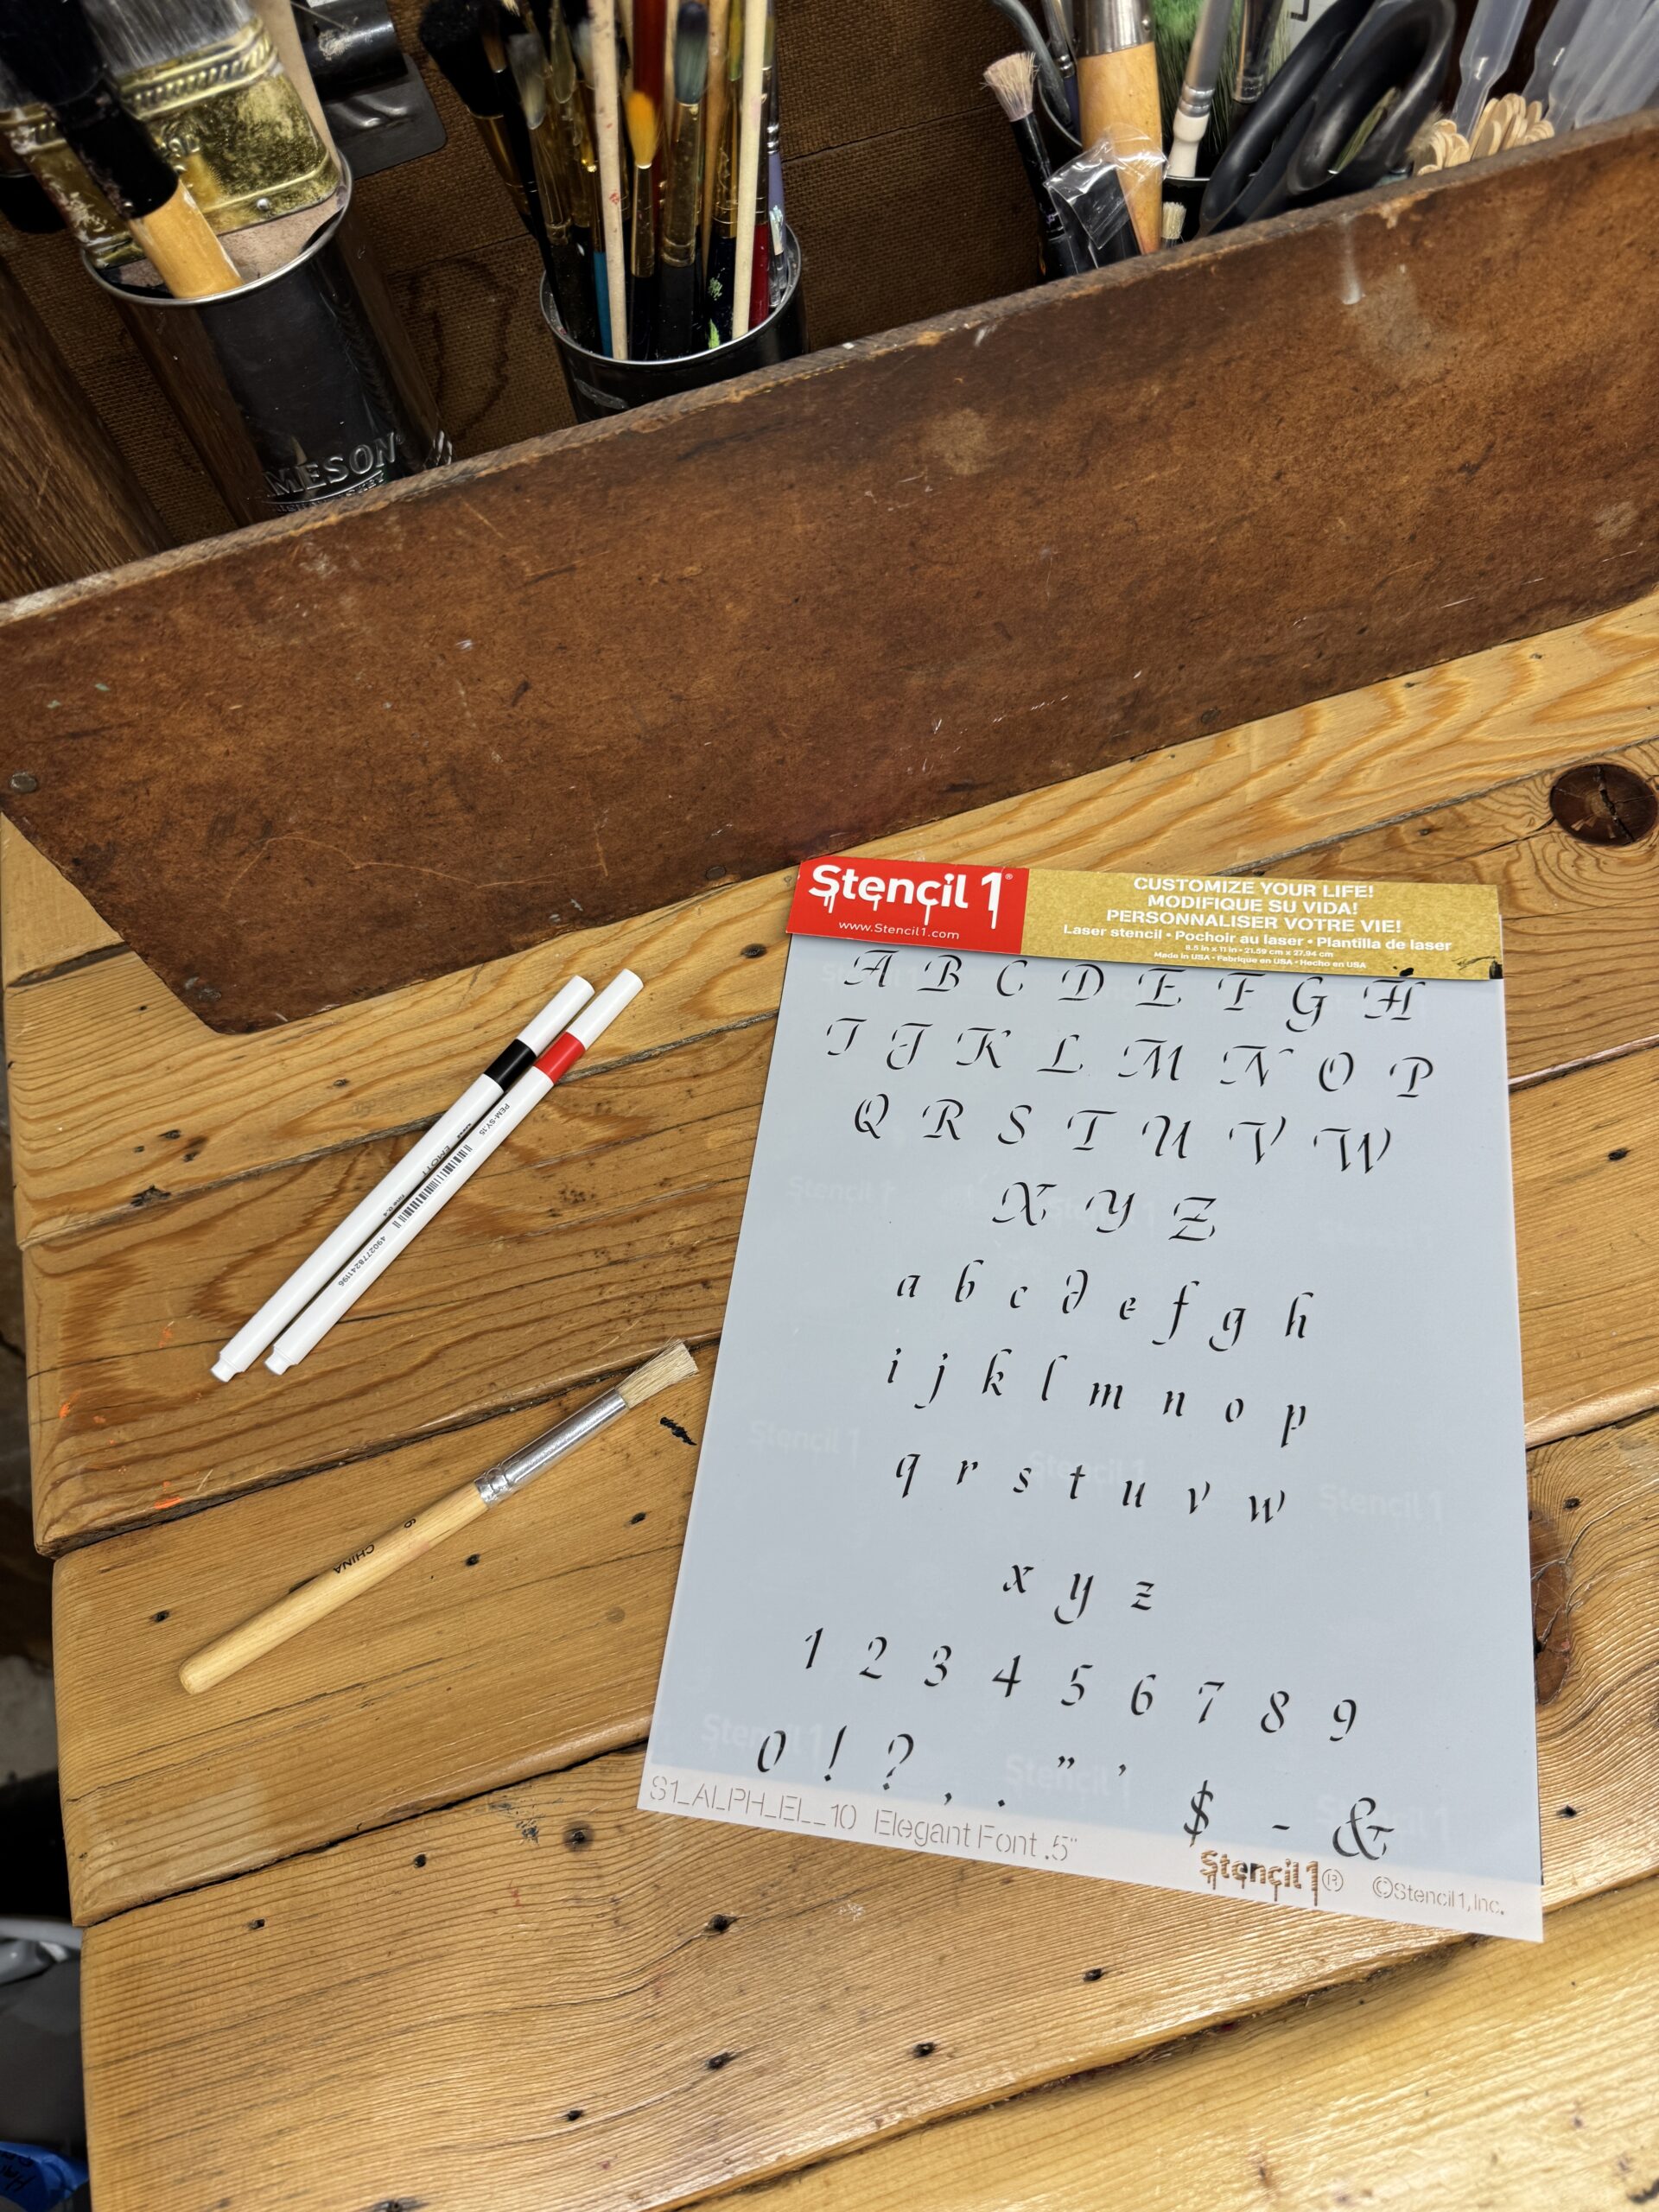 MESON
Stencil 1®
www.Stencil1.com
CUSTOMIZE YOUR LIFE!
MODIFIQUE SU VIDA!
PERSONNALISER VOTRE VIE!
Laser stencil • Pochoir au laser • Plantilla de laser
8.5 in x 11 in • 21.59 cm x 27.94 cm
Made in USA • Fabrique en USA • Hecho en USA
A B C D E F G H
I J K L M N O P
Q R S T U V W
X Y Z
a b c d e f g h
i j k l m n o p
q r s t u v w
x y z
1 2 3 4 5 6 7 8 9
0 ! ? , . " ' $ - &
S1_ALPH_EL_10 Elegant Font .5"
Stencil1® ©Stencil1, Inc.
EMOTT
PEM-SY.15
4902778241196
6 CHINA
Stencil 1
Stencil 1
Stencil 1
Stencil 1
Stencil 1
Stencil 1
Stencil 1